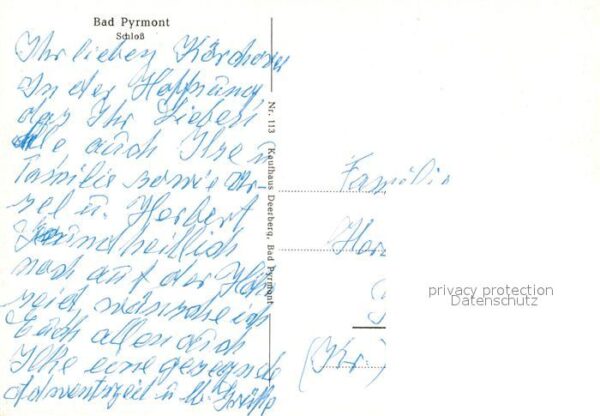 Bad Pyrmont
Schloß
Ihr lieben
In der Hoffnung
daß Ihr Lieben
alle auch Ilse u
Familie sowie Ur-
sel u. Herbert
noch auf der Höh
seid wünsche ich
Euch allen auch
eine gesegnete
Adventszeit u.
Nr. 113 Kaufhaus Deerberg, Bad Pyrmont
Familie
(Kr.)
privacy protection
Datenschutz